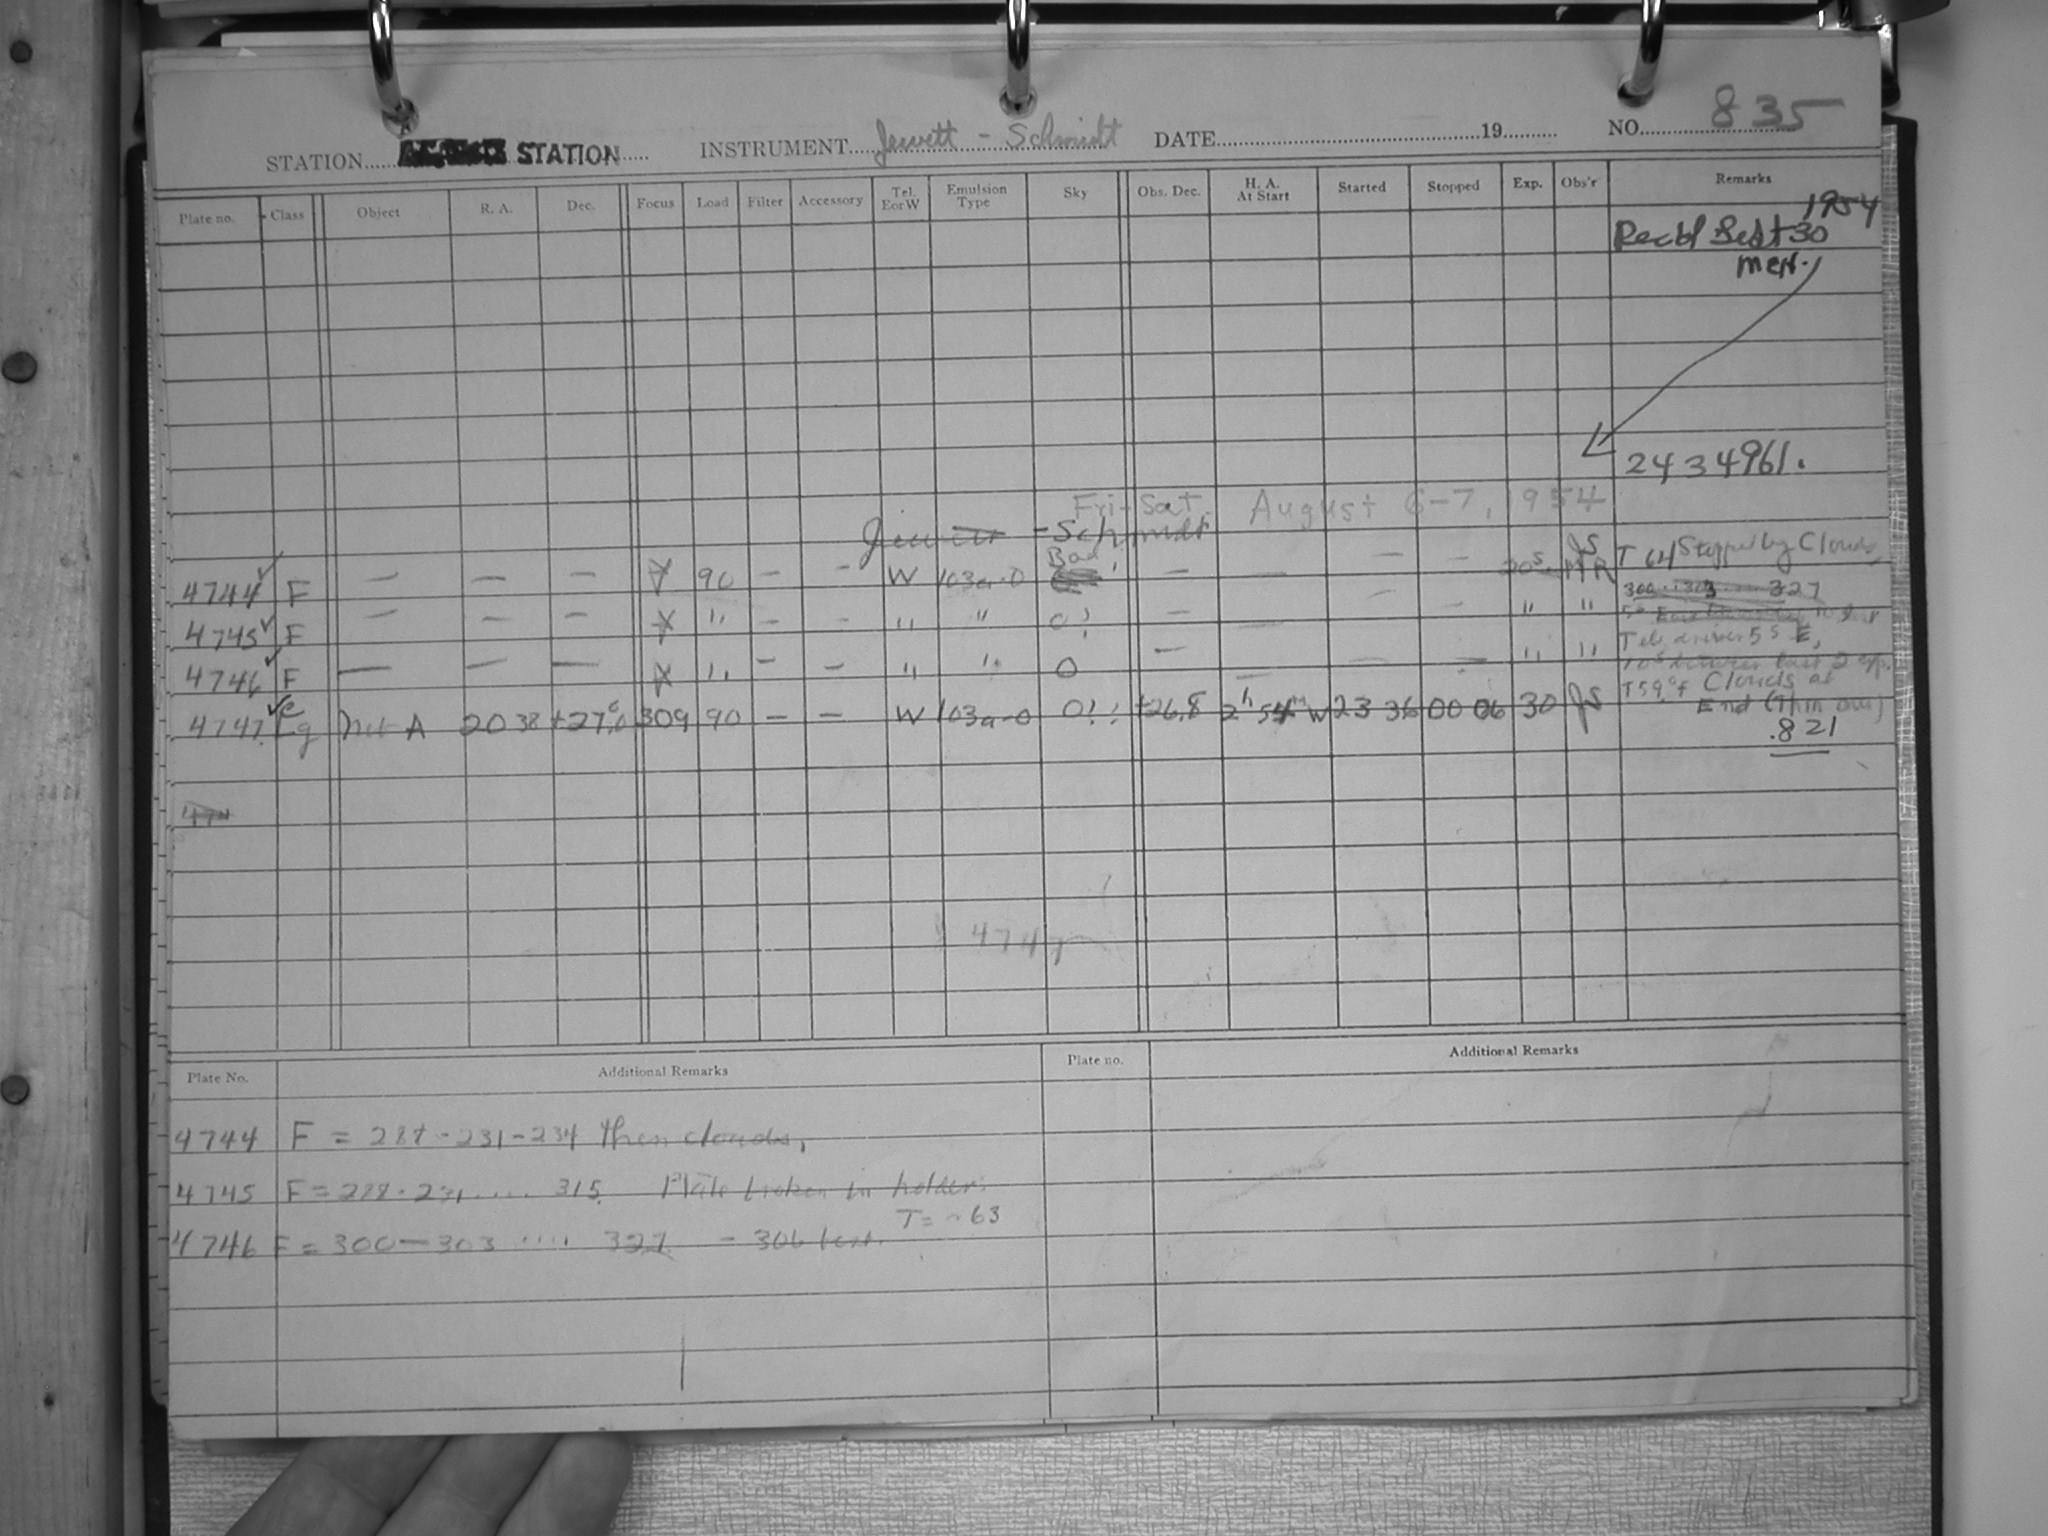 STATION STATION INSTRUMENT Jewett - Schmidt DATE 19 NO. 835
Plate no. Class Object R. A. Dec. Focus Load Filter Accessory Tel. E or W Emulsion Type Sky Obs. Dec. H. A. At Start Started Stopped Exp. Obs'r Remarks
1954
Rec'd Sept 30
2434961.
Fri-Sat. August 6-7, 1954
Jewett - Schmidt
4744 F — — — 90 — — W 103a-0 Bad — — — 20s. JS T 64 Stopped by Clouds
4745 F — — — " — — " " — — — — " "
4746 F — — — " — — " " 0 — — — — " "
4747 Net A 20 38 +27°.0 309 90 — — W 103a-0 0!! +26.8 2h 54m W 23 36 00 06 30 JS T59°F Clouds at
End (Thin ones)
.821
474
4747
Plate No. Additional Remarks Plate no. Additional Remarks
4744 F = 287 - 231 - 234 then clouds.
4745 F = 228 - 231 .... 315. Plate broken in holder.
T = ~63
4746 F = 300 — 303 ..... 327 - 306 best.